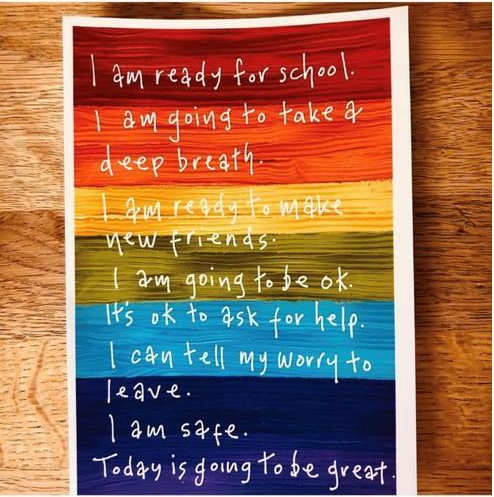 I am ready for school.
I am going to take a
deep breath.
I am ready to make
new friends.
I am going to be ok.
It's ok to ask for help.
I can tell my worry to
leave.
I am safe.
Today is going to be great.